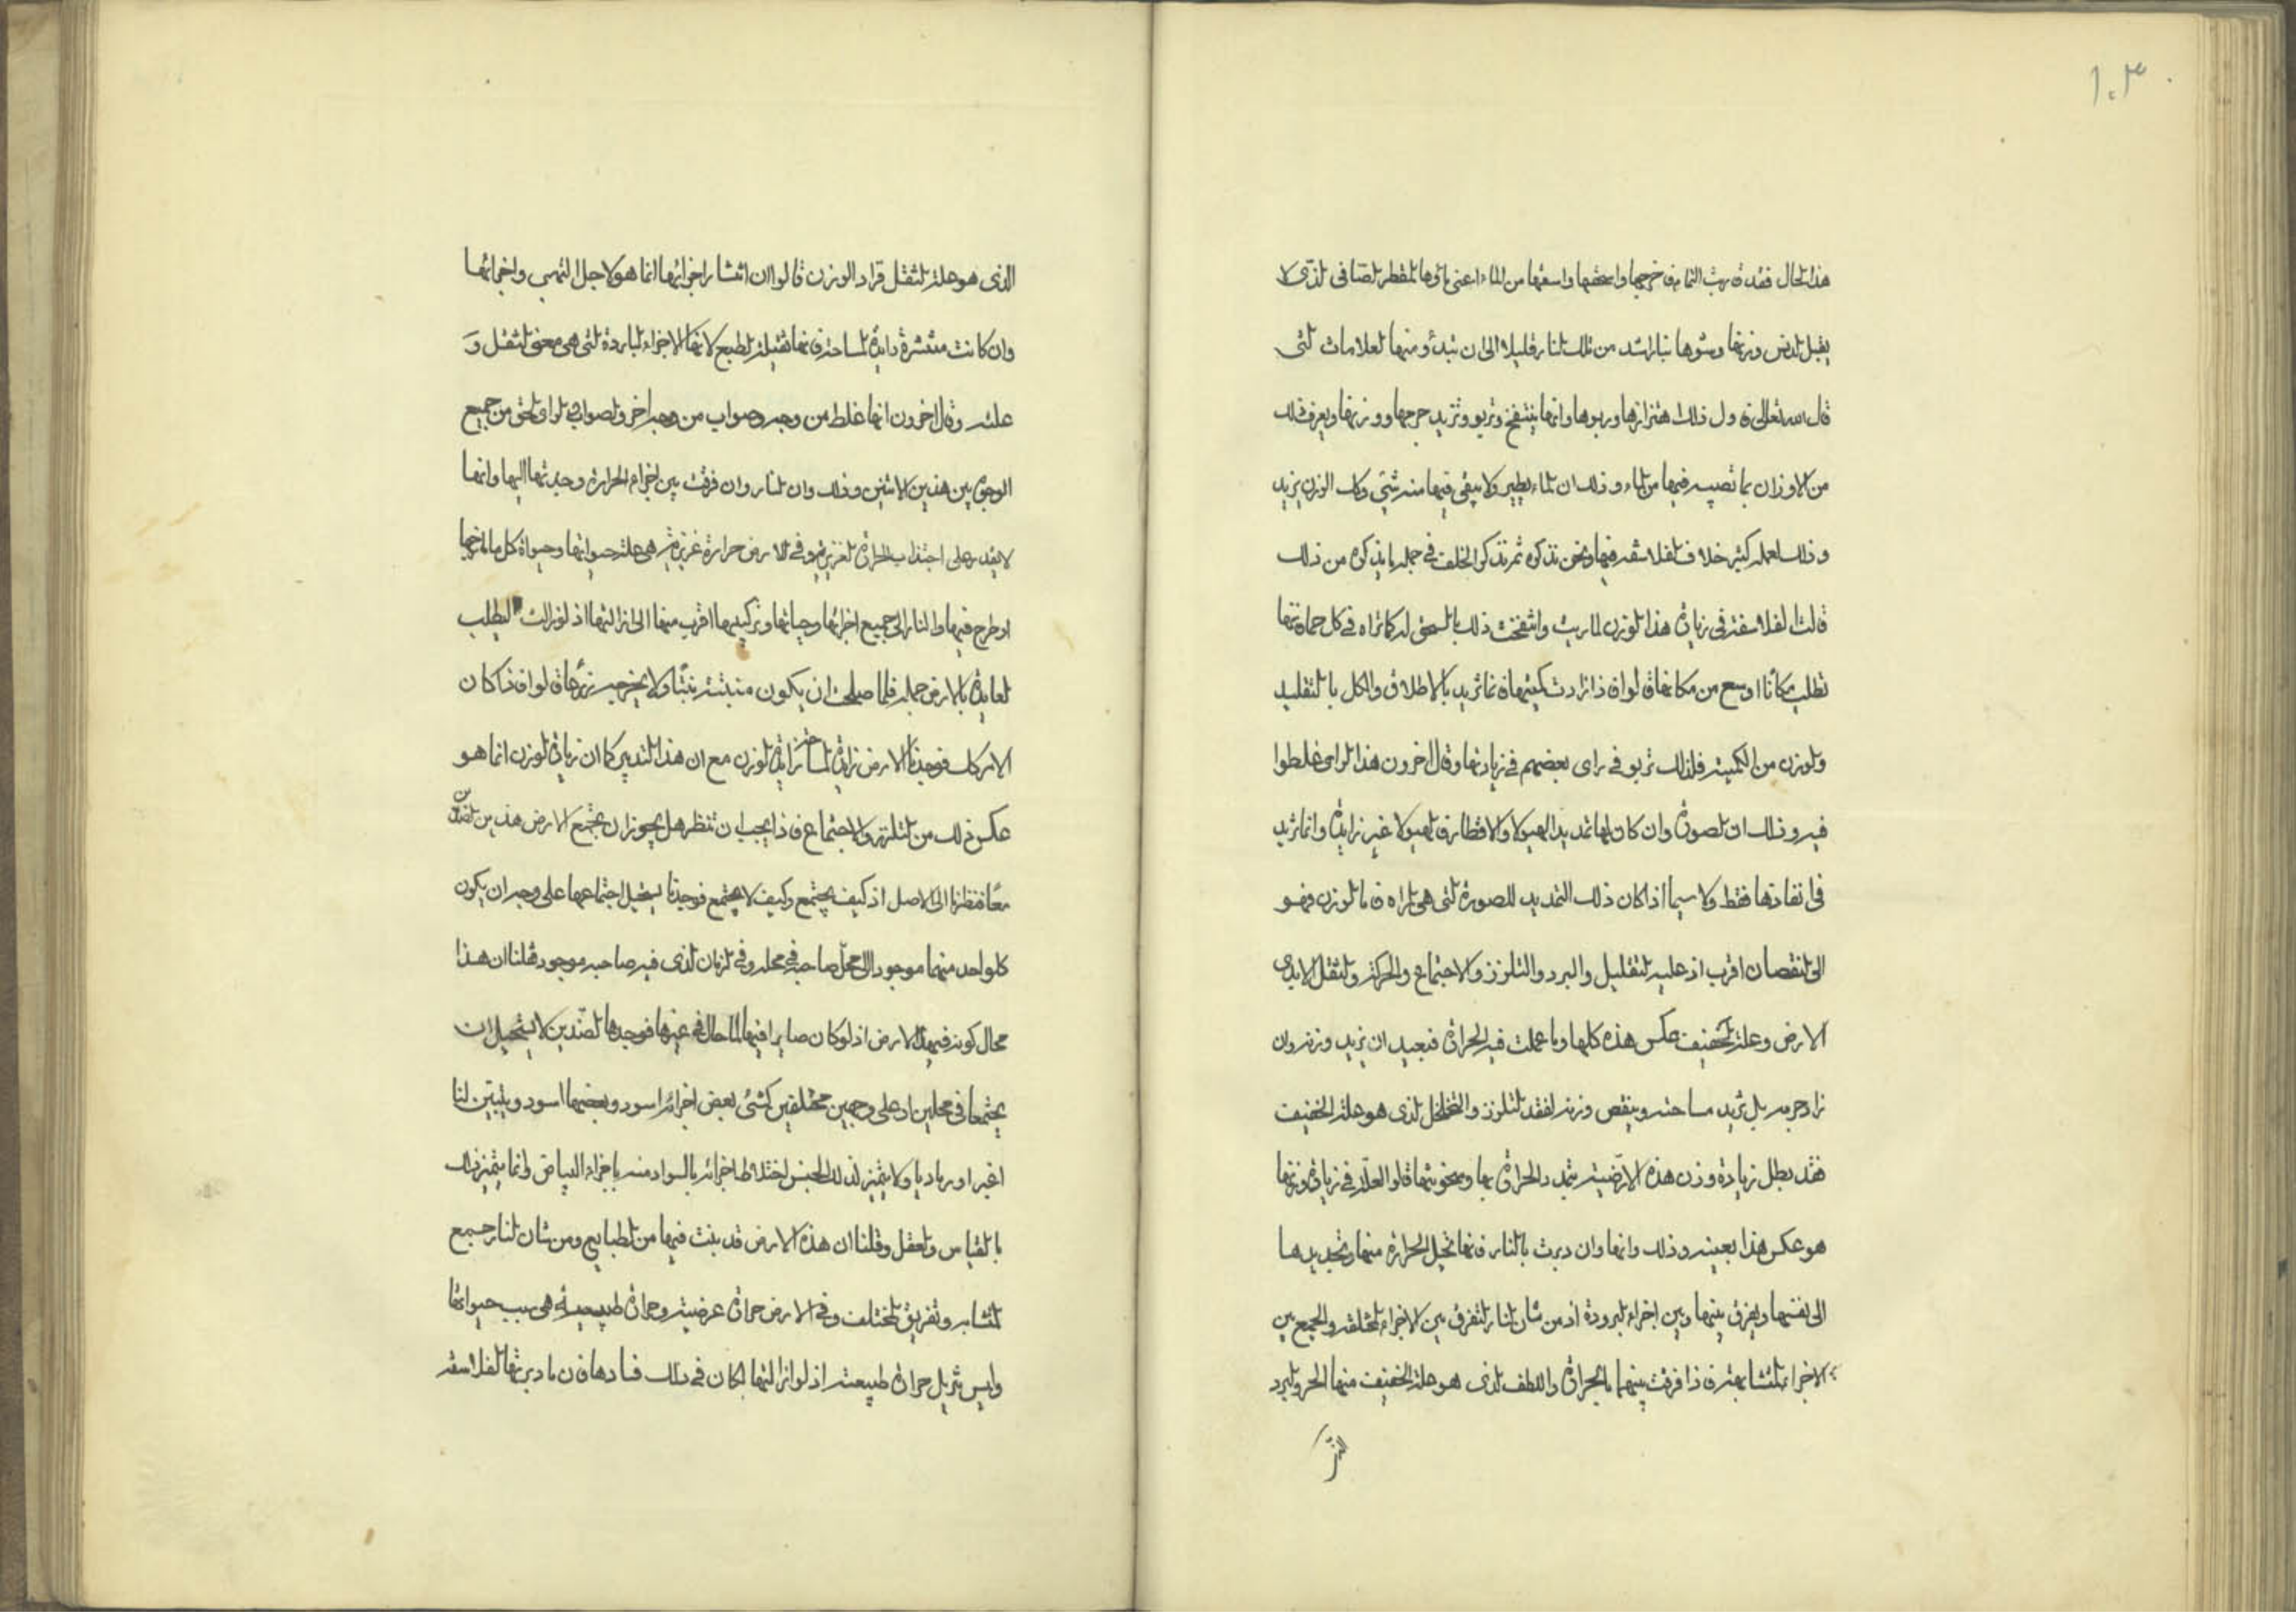 ١٠٣
هذا الحال فقد قربت التمام فى خرجها واسحقها واسقها من الماء اعنى ماؤها المقطر الصافى الذى لا
يقبل الدنس وزنها وشوها بنار اشد من تلك النار قليلا الى ان تبدأ ومنها العلامات التى
قال الله تعالى فاول ذلك اهتزازها وربوها وانها ينتفخ وتربو وتزيد حرجها ووزنها ويعرف ذلك
من الاوزان بما تصيبه فيها من الماء وذلك ان الماء يطير ولا يبقى فيها منه شئ وكل الوزن يزيد
وذلك لعمل كثير خلاف الفلاسفه فيها ونحن نذكره ثم نذكر الخلف فى جمله ما يذكره من ذلك
قالت الفلاسفه فى زيادة هذا الوزن لما ربت وانتفخت ذلك بالسحق له كما تراه فى كل حماة تها
تطلب مكانا اوسع من مكانها قالوا فاذا زادت كميتها فانما تزيد بالاطلاق والكل بالتقليد
والوزن من الكميه فلذلك تربو فى راى بعضهم فى زيادتها وقال اخرون هذا الراى غلطوا
فيه وذلك ان الصورة وان كان لها تمديد الهيولا والاقطار فالهيولا غير زايدة وانما تزيد
فى انقادتها فقط ولا سيما اذا كان ذلك التمديد للصورة التى هى المراه فاما الوزن فهو
الى النقصان اقرب اذ عليه التقليل والبرد والتلزز والاجتماع والحركه والثقل الايدى
الارض وعلة الخفيف عكس هذه كلها وما عملت فيه الحرارة فبعيد ان يزيد وزنه وان
زاد جرمه بل تزيد مساحته وينقص وزنه لفقد التلزز والتخلخل الذى هو علة الخفيف
فقد بطل زيادة وزن هذه الارضيه بتمدد الحرارة بها وسخونتها قالوا العلة فى زيادة وزنها
هو عكس هذا بعينه وذلك وانها وان دبرت بالنار فانها تحيل الحرارة منها وتجديدها
الى نفسها ويفرق بينها وبين اجزاء البرودة اذ من شان النار التفرق بين الاجزاء المختلفه والجمع بين
الاجزاء المتشابهه فاذا فرقت بينهما بالحرارة والطف الذى هو علة الخفيف منها الحر والبرد
الذى هو علة الثقل قراد الوزن قالوا ان انتشار اجزائها انما هو لاجل التهبى واخرائها
وان كانت منتشرة زايدة المساحه فانها ثقيله الطبع لانها الاجزاء الباردة التى هى معنى الثقل و
علته وقال اخرون انها غلط من وجه وصواب من وجه اخر والصواب فى الراى الحق من جميع
الوجوه بين هذين الاثنين وذلك وان النار وان فرقت بين اجزام الحرارة وجذبتها اليها وانها
لا يقدر على اجتذاب الحرارة الغريزيه وفى الارض حرارة غريزيه هى علة حيوانها وحيواة كل ما
او طرح فيها والنار الى جميع اجزائها وحياتها وتركيبها اقرب منها الى ازالتها اذ لو زالت البطلب
الفايدة بالارض جمله فلما صلحت ان يكون منبته نبتا ولا يخرجه زرعا قالوا فاذا كان
الامر كك فوجدنا الارض زايدة المساحه زايدة الوزن مع ان هذا التدبير كان زيادة الوزن انما هو
عكس ذلك من التلزز والاجتماع فاذا يجب ان تنظر هل يجوز ان يجتمع الارض هذين من الضدين
معا فنظرنا الى الاصل اذ كيف يجتمع وكيف لا يجتمع فوجدنا يستحيل اجتماعهما على وجه ان يكون
كل واحد منهما موجودا الى محل صاحبه فى محله وفى الزمان الذى فيه صاحبه موجود فقلنا ان هذا
محال كونه فيهذه الارض اذ لو كان صايرا فيها لما حال فى غيرها فوجدها الضدين لا يستحيل ان
يجتمعا فى محلين او على وجهين مختلفين كشئ بعض اجزائه اسود وبعضها اسود ويتبين لنا
اغبر او رماديا ولا يتميز لذلك الحبس لاختلاط اجزائه بالسواد منه باجزاء البياض وانما يتميز ذلك
بالقياس والعقل وقلنا ان هذه الارض قد بنت فيها من الطبايع ومن شان النار جمع
المتشابه وتفريق المختلف وفى الارض حرارة عرضيه وحرارة طبيعيه هى سبب حيواتها
وليس تزيل حرارة طبيعته اذ لو ازالتها لكان فى ذلك فسادها فان ما دبرتها الفلاسفه